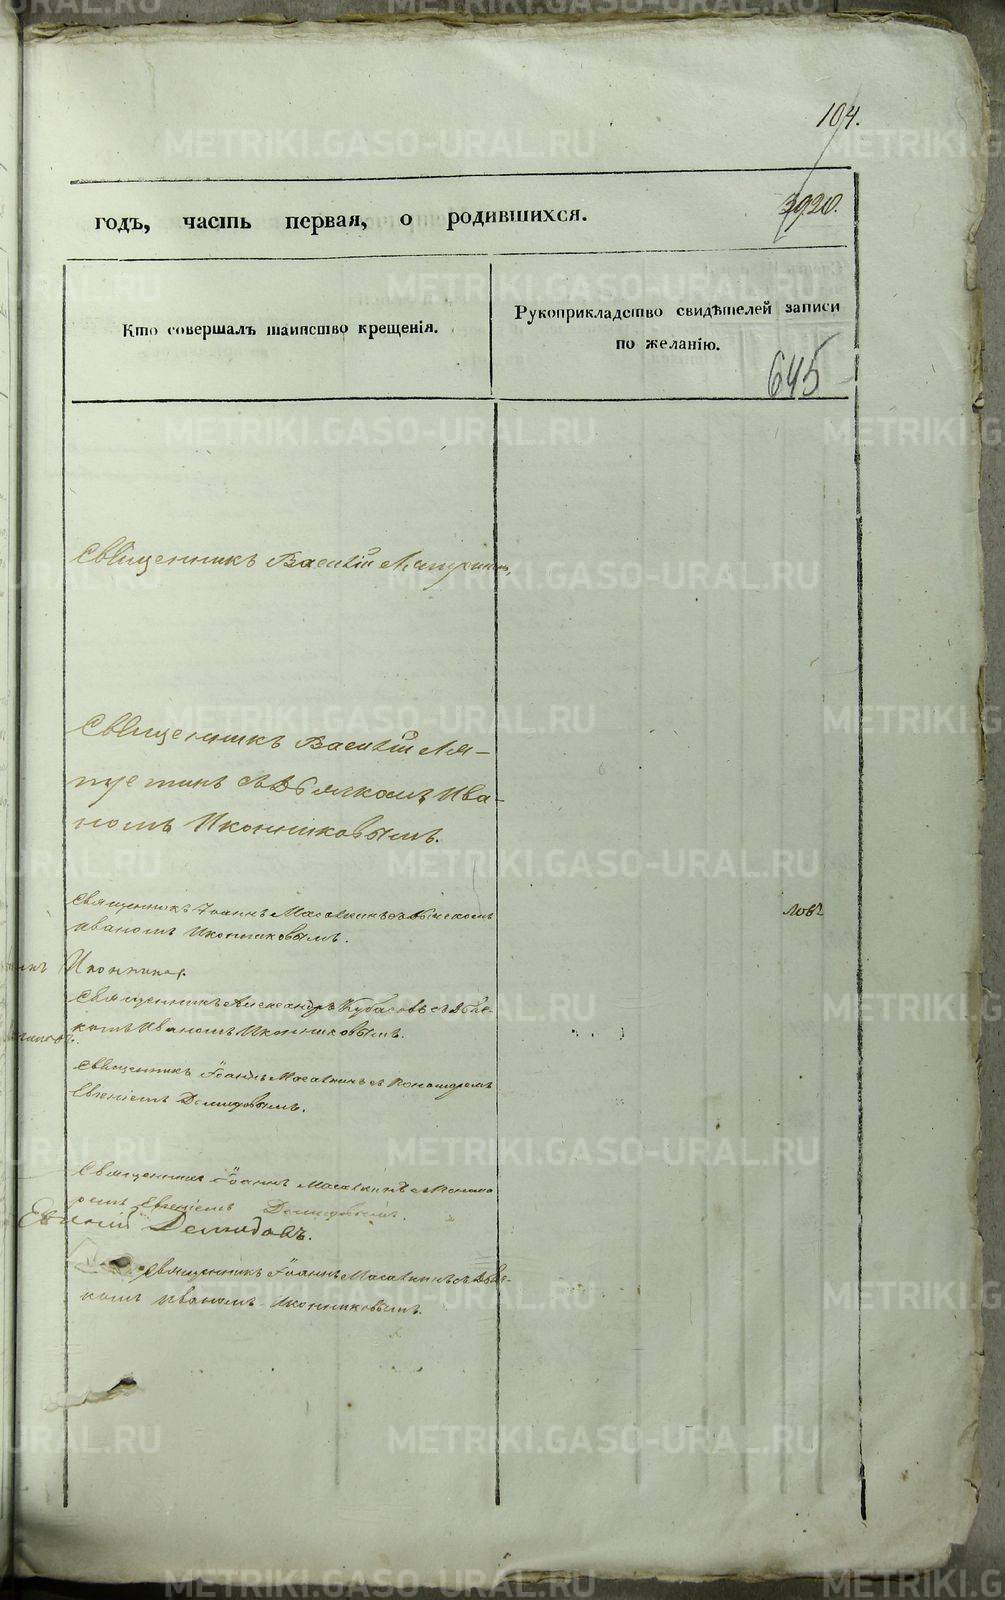 104.
годъ, часть первая, о родившихся.
3920.
Кто совершалъ таинство крещенія.
Рукоприкладство свидѣтелей записи
по желанію.
645
Священникъ Василій Ляпустинъ,
Священникъ Василій Ля-
пустинъ съ Дьячкомъ Ива-
номъ Иконниковымъ.
Священникъ Іоаннъ Масалкинъ съ Дьячкомъ
Иваномъ Иконниковымъ.
ловъ
Иконников.
Священникъ Александръ Кубасовъ съ Дьяч-
комъ Иваномъ Иконниковымъ.
Священникъ Іоаннъ Масалкинъ съ Пономаремъ
Евгеніемъ Демидовымъ.
Священникъ Іоаннъ Масалкинъ съ Понома
ремъ Евгеніемъ Демидовымъ.
Евгеній Демидовъ.
Священникъ Іоаннъ Масалкинъ съ Дьяч-
комъ Иваномъ Иконниковымъ.
METRIKI.GASO-URAL.RU